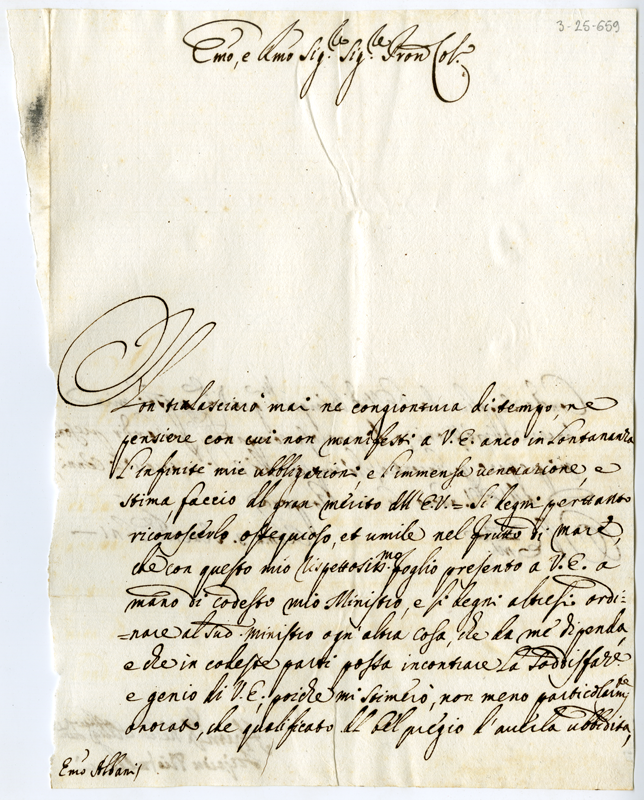 3-25-659
Emo, e Rmo Sig.re Sig.re Pron Col.
Non tralasciarò mai ne congiontura di tempo, ne
pensiere con cui non manifesti a V. E. anco in Lontananza
l'infinite mie obbligazioni, e l'immensa venerazione, e
stima faccio al gran merito dell'E.V. = Si degni pertanto
riconoscerlo ossequioso, et umile nel frutto di mare,
che con questo mio rispettosis.mo foglio presento a V. E. a
mano di codesto mio Ministro, e si degni altresi ordi=
=nare al sud. ministro ogn'altra cosa, che da me dipenda,
e che in codeste parti possa incontrare la sodisfare
e genio di V. E.; poiche mi stimerò, non meno particolarm.te
onorato, che qualificato dal bel pregio d'averla ubbidita,
Emo Albani